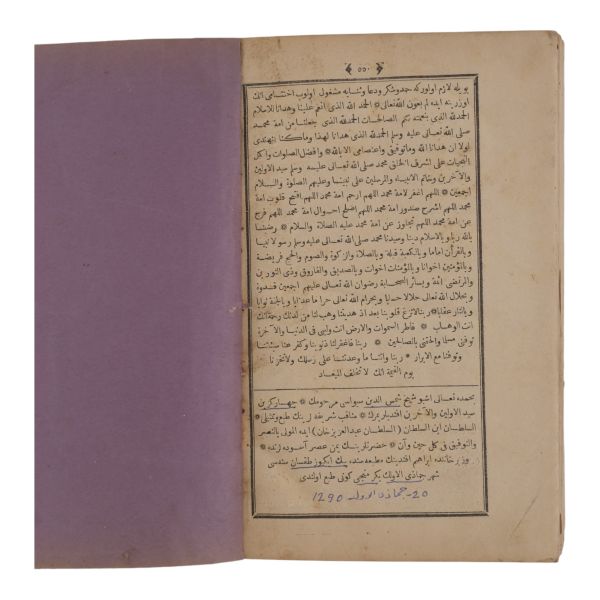 ٥٥٠
بو يله لازم اولوركه حمد وشكر ودعا وثنايه مشغول اولوب اختتامى انك
اوزرينه ايده لم بعون الله تعالى * الحمد لله الذى انعم علينا وهدانا للاسلام
الحمدلله الذى بنعمته تتم الصالحات الحمدلله الذى جعلنا من امة محمد
صلى الله تعالى عليه وسلم الحمدلله الذى هدانا لهذا وما كنا لنهتدى
لولا ان هدانا الله وماتوفيقى واعتصامى الا بالله * وافضل الصلوات واكمل
التحيات على اشرف الخلق محمد صلى الله تعالى عليه وسلم سيد الاولين
والآخرين وخاتم الانبياء والمرسلين على نبينا وعليهم الصلوة والسلام
اجمعين * اللهم اغفر لامة محمد اللهم ارحم امة محمد اللهم افتح قلوب امة
محمد اللهم اشرح صدور امة محمد اللهم اصلح احوال امة محمد اللهم فرج
عن امة محمد اللهم تجاوز عن امة محمد عليه الصلاة والسلام * رضينا
بالله ربا وبالاسلام دينا وسيدنا محمد صلى الله تعالى عليه وسلم رسولا نبيا
وبالقرأن اماما وبالكعبة قبلة وبالصلاة والزكوة والصوم والحج فريضة
وبالمؤمنين اخوانا وبالمؤمنات اخوات وبالصديق والفاروق وذى النورين
والمرتضى ائمة وبسائر الصحابة رضوان الله تعالى عليهم اجمعين قدوة
وبحلال الله تعالى حلالا حدايا وبحرام الله تعالى حراما عدايا وبالجنة ثوابا
وبالنار عقابا * ربنا لاتزغ قلوبنا بعد اذ هديتنا وهب لنا من لدنك رحمة انك
انت الوهاب * فاطر السموات والارض انت وليى فى الدنيا والآخرة
توفنى مسلما والحقنى بالصالحين * ربنا فاغفرلنا ذنوبنا وكفر عنا سيئاتنا
وتوفنا مع الابرار * ربنا وآتنا ما وعدتنا على رسلك ولاتخزنا
يوم القيمة انك لا تخلف الميعاد
بحمده تعالى اشبو شيخ شمس الدين سيواسى مرحومك * چهار كزين
سيد الاولين والآخرين افتدبلرمزك * مناقب شريفه لرينك طبع وتمثيلى *
السلطان ابن السلطان (السلطان عبد العزيز خان) ايده المولى بالنصر
والتوفيق فى كل حين وآن * حضرتلرينك يمن عصر آسوده لرنده *
وزير خاننده ابراهيم افندينك مطبعه سنده بيك ايكيوز طقسان سنه سى
شهر جماذى الاولنك يكرمنجى كونى طبع اولندى
20- جماذ الاولى 1290